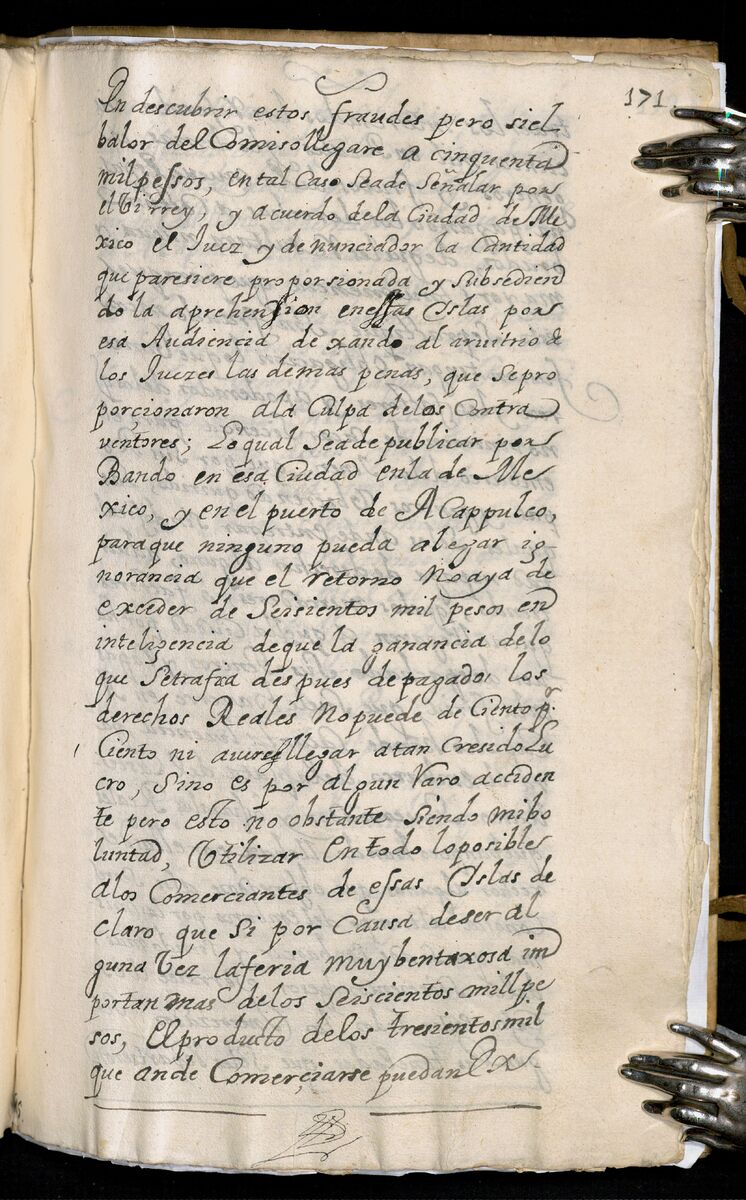 171
En descubrir estos fraudes pero siel
balor del Comisollegare a cinquenta
mil pessos, en tal Caso Seade Señalar por
el Virrey, y acuerdo dela Ciudad de Me
xico el Juez y denunciador la Cantidad
que paresiere proporsionada y subsedien
do la aprehension enessas Yslas por
esa Audiencia dexando al arvitrio de
los Juezes las demas penas, que Sepro
porçionaron ala Culpa delos Contra
ventores; Loqual Seade publicar por
Bando en esa Ciudad enla de Me
xico, y en el puerto de ACappulco,
paraque ninguno pueda alegar ig
norancia que el retorno Noaya de
exceder de Seisientos mil pesos en
inteligencia deque la ganancia delo
que Setrafica despues depagados los
derechos Reales No puede de Ciento pr.
Ciento ni aun llegar atan Cresido Lu
cro, Sino es por algun Varo acciden
te pero esto no obstante Siendo mibo
luntad, Utilizar En todo loposible
alos Comerciantes de essas Yslas de
claro que Si por Causa deser al
guna Vez laferia muybentaxosa im
portan mas delos Seiscientos mill pe
sos, El producto delos tresientosmil
que ande Comerçiarse puedan Ex